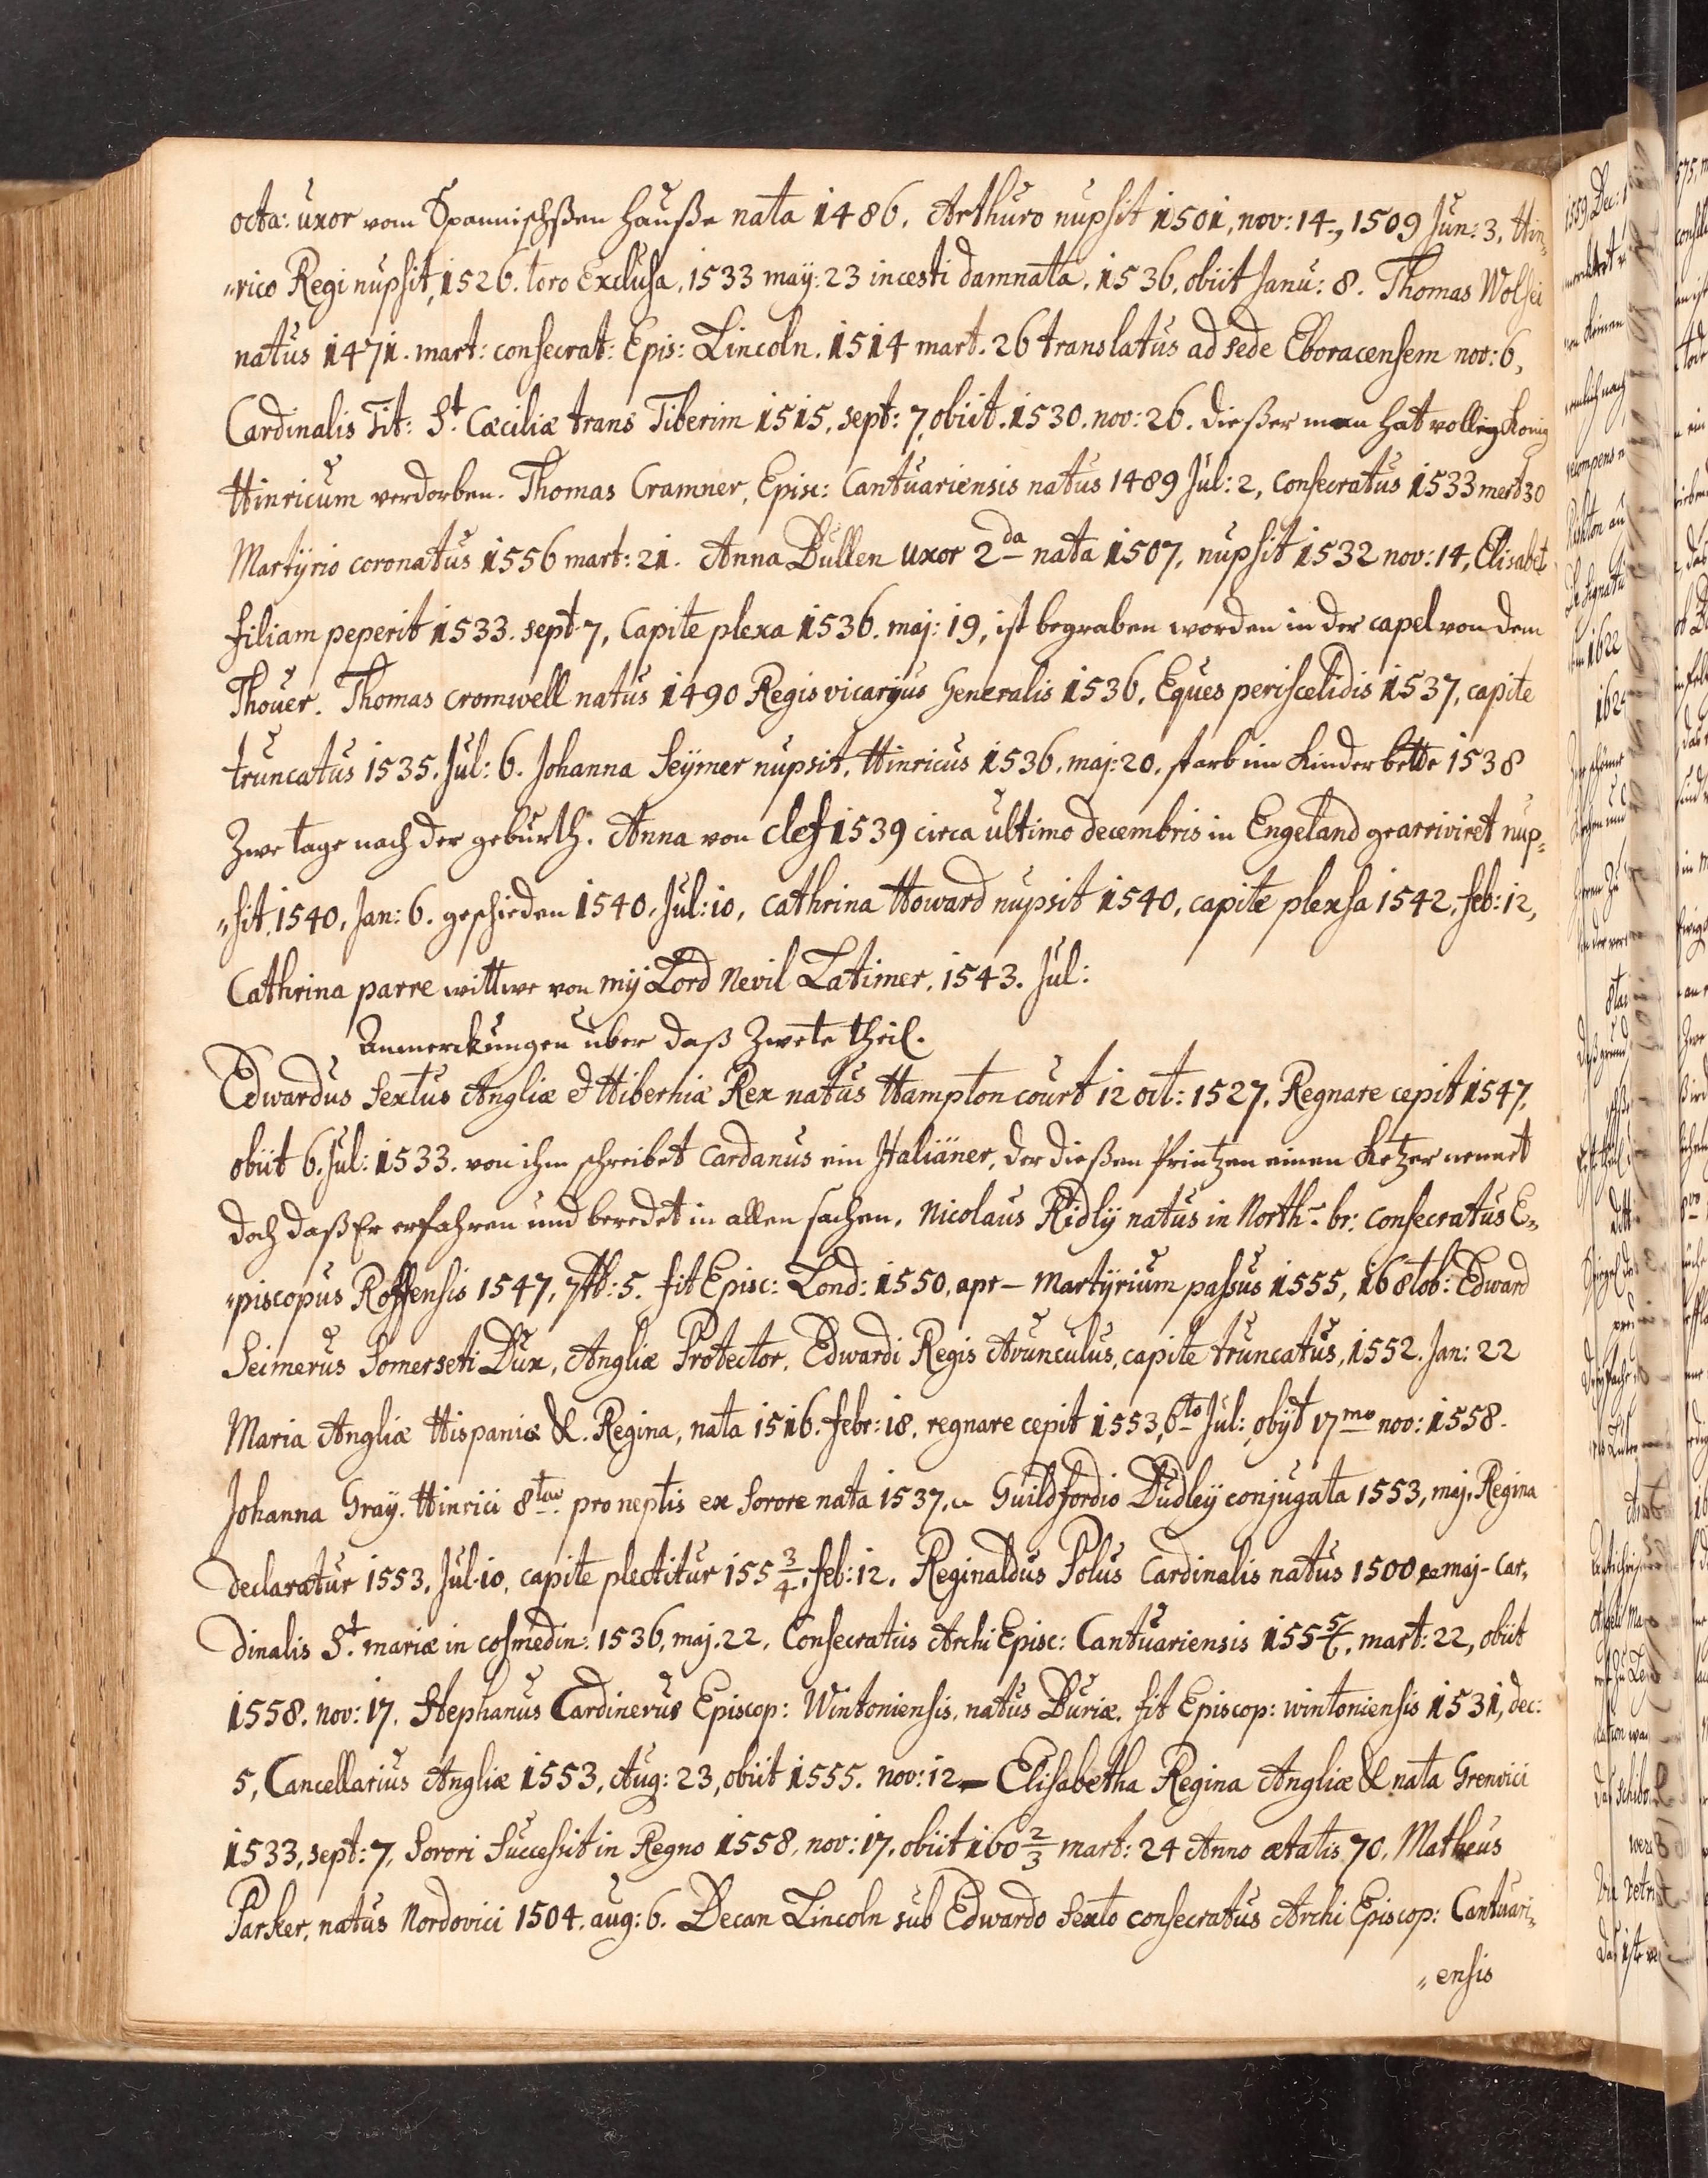 octa: uxor vom Spannischßen Hauße nata 1486. Arthuro nupsit 1501, nov: 14., 1509 Jun: 3. Hin„
„rico Regi nupsit, 1526. toro Exclusa, 1533 maÿ: 23 incesti damnata. 1536. obiit Janu: 8. Thomas Wolsei
natus 1471. mart: consecrat: Epis: Lincoln. 1514 mart. 26 translatus ad sede Eboracensem nov: 6,
Cardinalis Tit: St. Cæciliæ trans Tiberim 1515, sept: 7, obiit. 1530. nov: 26. dießer man hat vollig König
Hinricum verdorben. Thomas Cramner, Episc: Cantuariensis natus 1489 Jul: 2, consecratus 1533 mert 30
Martÿrio coronatus 1556 mart: 21. Anna Bullen uxor 2da nata 1507, nupsit 1532 nov: 14, Elisabet
filiam peperit 1533. sept 7, Capite plexa 1536. maj: 19, ist begraben worden in der capel von dem
Thouer. Thomas cromwell natus 1490 Regis vicarÿus Generalis 1536, Eques periscelidis 1537, capite
truncatus 1535. Jul: 6. Johanna Seÿmer nupsit. Hinricus 1536. maj: 20. starb im Kinder bette 1538
Zwe tage nach der geburth. Anna von clef 1539 circa ultimo decembris in Engeland gearriviret nup„
„sit. 1540. Jan: 6. geschieden 1540. Jul: 10, Cathrina Howard nupsit 1540, capite plexsa 1542. feb: 12,
Cathrina parre wittwe von mÿ Lord Nevil Latimer. 1543. Jul:
Anmerckungen über daß Zwete theil.
Edwardus Sextus Angliæ & Hiberniæ Rex natus Hampton court 12 oct: 1527. Regnare cepit 1547,
obiit 6. Jul: 1533. von ihm schreibet Cardanus ein Italiäner, der dießen Printzen einen Ketzer nennet
doch daß Er erfahren und beredet in allen sachen. Nicolaus Ridlÿ natus in North- br: consecratus E„
„piscopus Roffensis 1547, 7tb: 5. fit Episc: Lond: 1550, apr – Martÿrium passus 1555, 16 8tob: Edward
Seimerus Somerseti Dux, Angliæ Protector. Edwardi Regis Avunculus, capite truncatus, 1552. Jan: 22
Maria Angliæ Hispaniæ &. Regina, nata 1516. febr: 18. regnare cepit 1553, 6to Jul:, obÿt 17mo nov: 1558.
Johanna Graÿ. Hinrici 8tav. pro neptis ex sorore nata 1537. Guildfordio Dudleÿ conjugata 1553, maj. Regina
declaratur 1553. Jul. 10. capite plectitur 155 3/4. feb: 12. Reginaldus Polus Cardinalis natus 1500 maj - Car„
dinalis St. mariæ in cosmedin: 1536, maj. 22. Consecratus Archi Episc: Cantuariensis 155 5/6, mart: 22, obiit
1558. nov: 17. Stephanus Cardinerus Episcop: Wintoniensis, natus Buriæ. fit Episcop: wintoniensis 1531, dec:
5, Cancellarius Angliæ 1553, Aug: 23, obiit 1555. nov: 12 – Elisabetha Regina Angliæ & nata Grenvici
1533, sept: 7, Sorori Successit in Regno 1558, nov: 17. obiit 160 2/3 mart: 24 Anno ætatis 70. Matheus
Parker, natus Nordovici 1504. aug: 6. Decan Lincoln sub Edwardo Sexto consecratus Archi Episcop: Cantuari„
„ensis